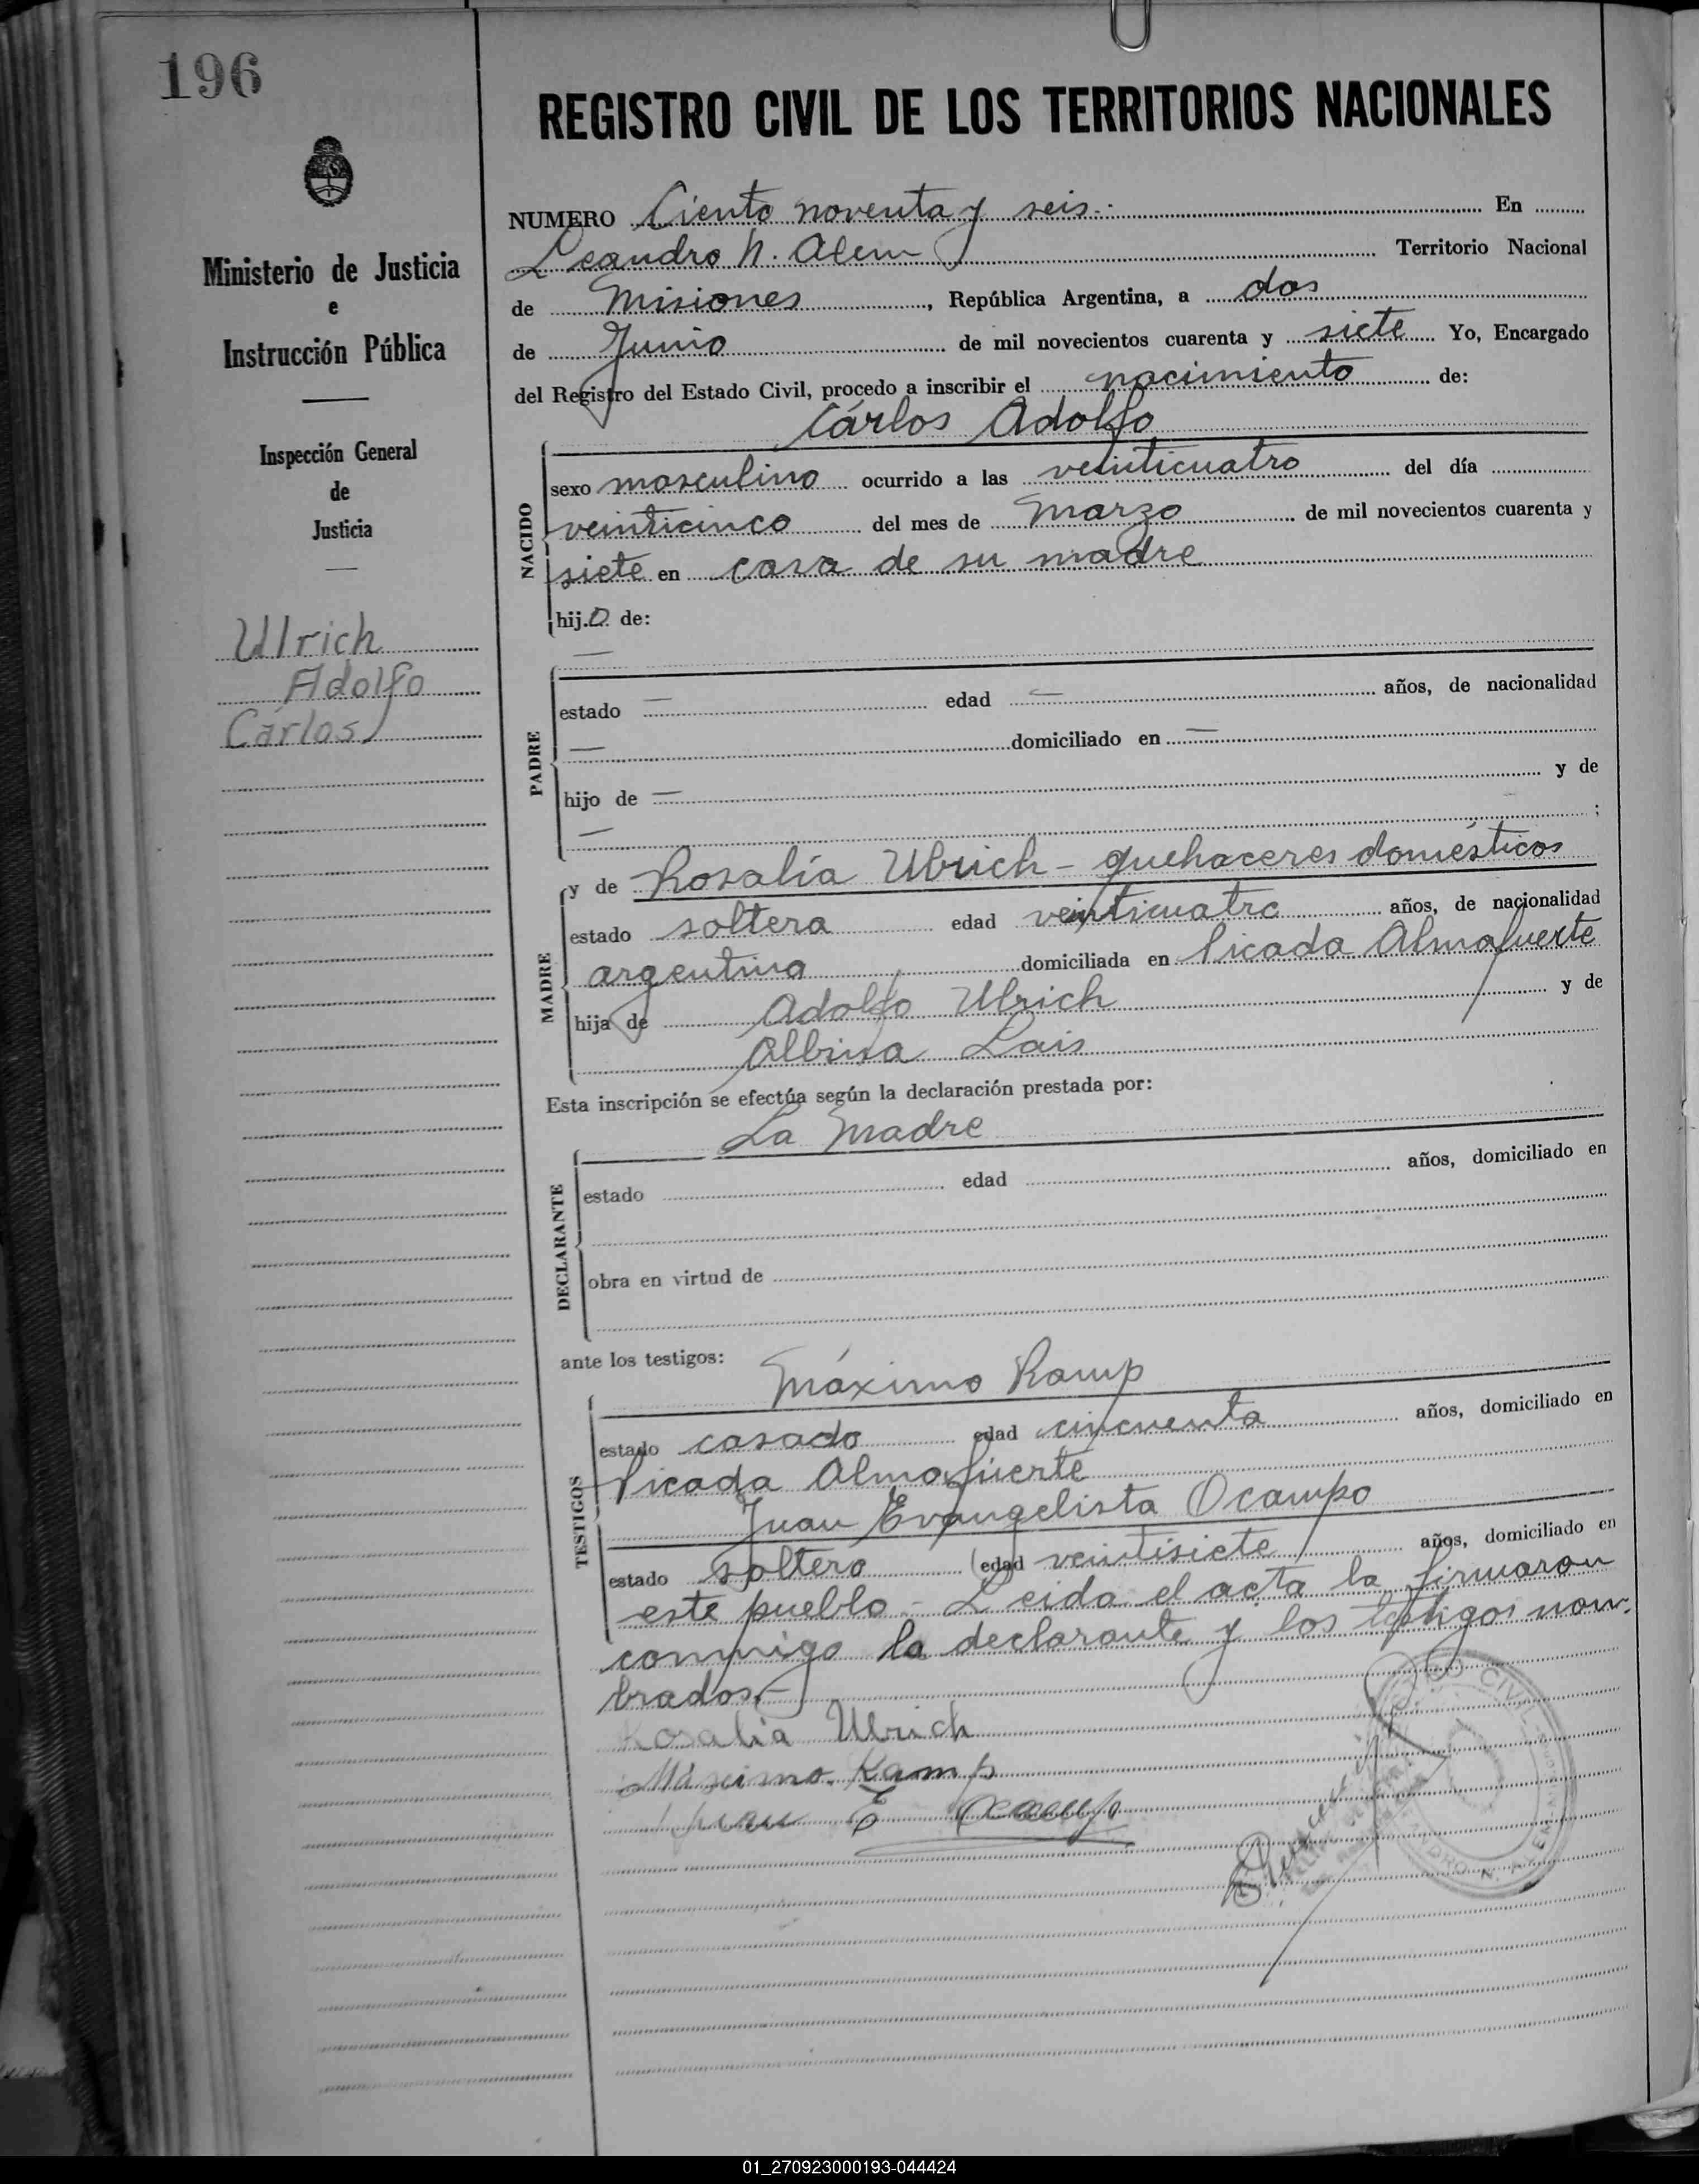 196
Ministerio de Justicia
e
Instrucción Pública
Inspección General
de
Justicia
Ulrich
Adolfo
Cárlos
REGISTRO CIVIL DE LOS TERRITORIOS NACIONALES
NUMERO Ciento noventa y seis.- En
Leandro N. Alem Territorio Nacional
de Misiones, República Argentina, a dos
de Junio de mil novecientos cuarenta y siete Yo, Encargado
del Registro del Estado Civil, procedo a inscribir el nacimiento de:
Cárlos Adolfo
NACIDO
sexo masculino ocurrido a las veinticuatro del día
veinticinco del mes de Marzo de mil novecientos cuarenta y
siete en casa de su madre
hijo de:
—
PADRE
estado — edad — años, de nacionalidad
— domiciliado en —
hijo de — y de
— ;
MADRE
y de Rosalía Ulrich - quehaceres domésticos
estado soltera edad veinticuatro años, de nacionalidad
argentina domiciliada en Picada Almafuerte
hija de Adolfo Ulrich y de
Albina Lais
Esta inscripción se efectúa según la declaración prestada por:
La Madre
DECLARANTE
estado edad años, domiciliado en
obra en virtud de
ante los testigos:
Máximo Kamp
TESTIGOS
estado casado edad cincuenta años, domiciliado en
Picada Almafuerte
Juan Evangelista Ocampo
estado soltero edad veintisiete años, domiciliado en
este pueblo - Leida el acta la firmaron
conmigo la declarante y los testigos nom-
brados.-
Rosalia Ulrich
Máximo Kamp
Juan E Ocampo
CIVIL
N. ALEM
01_270923000193-044424